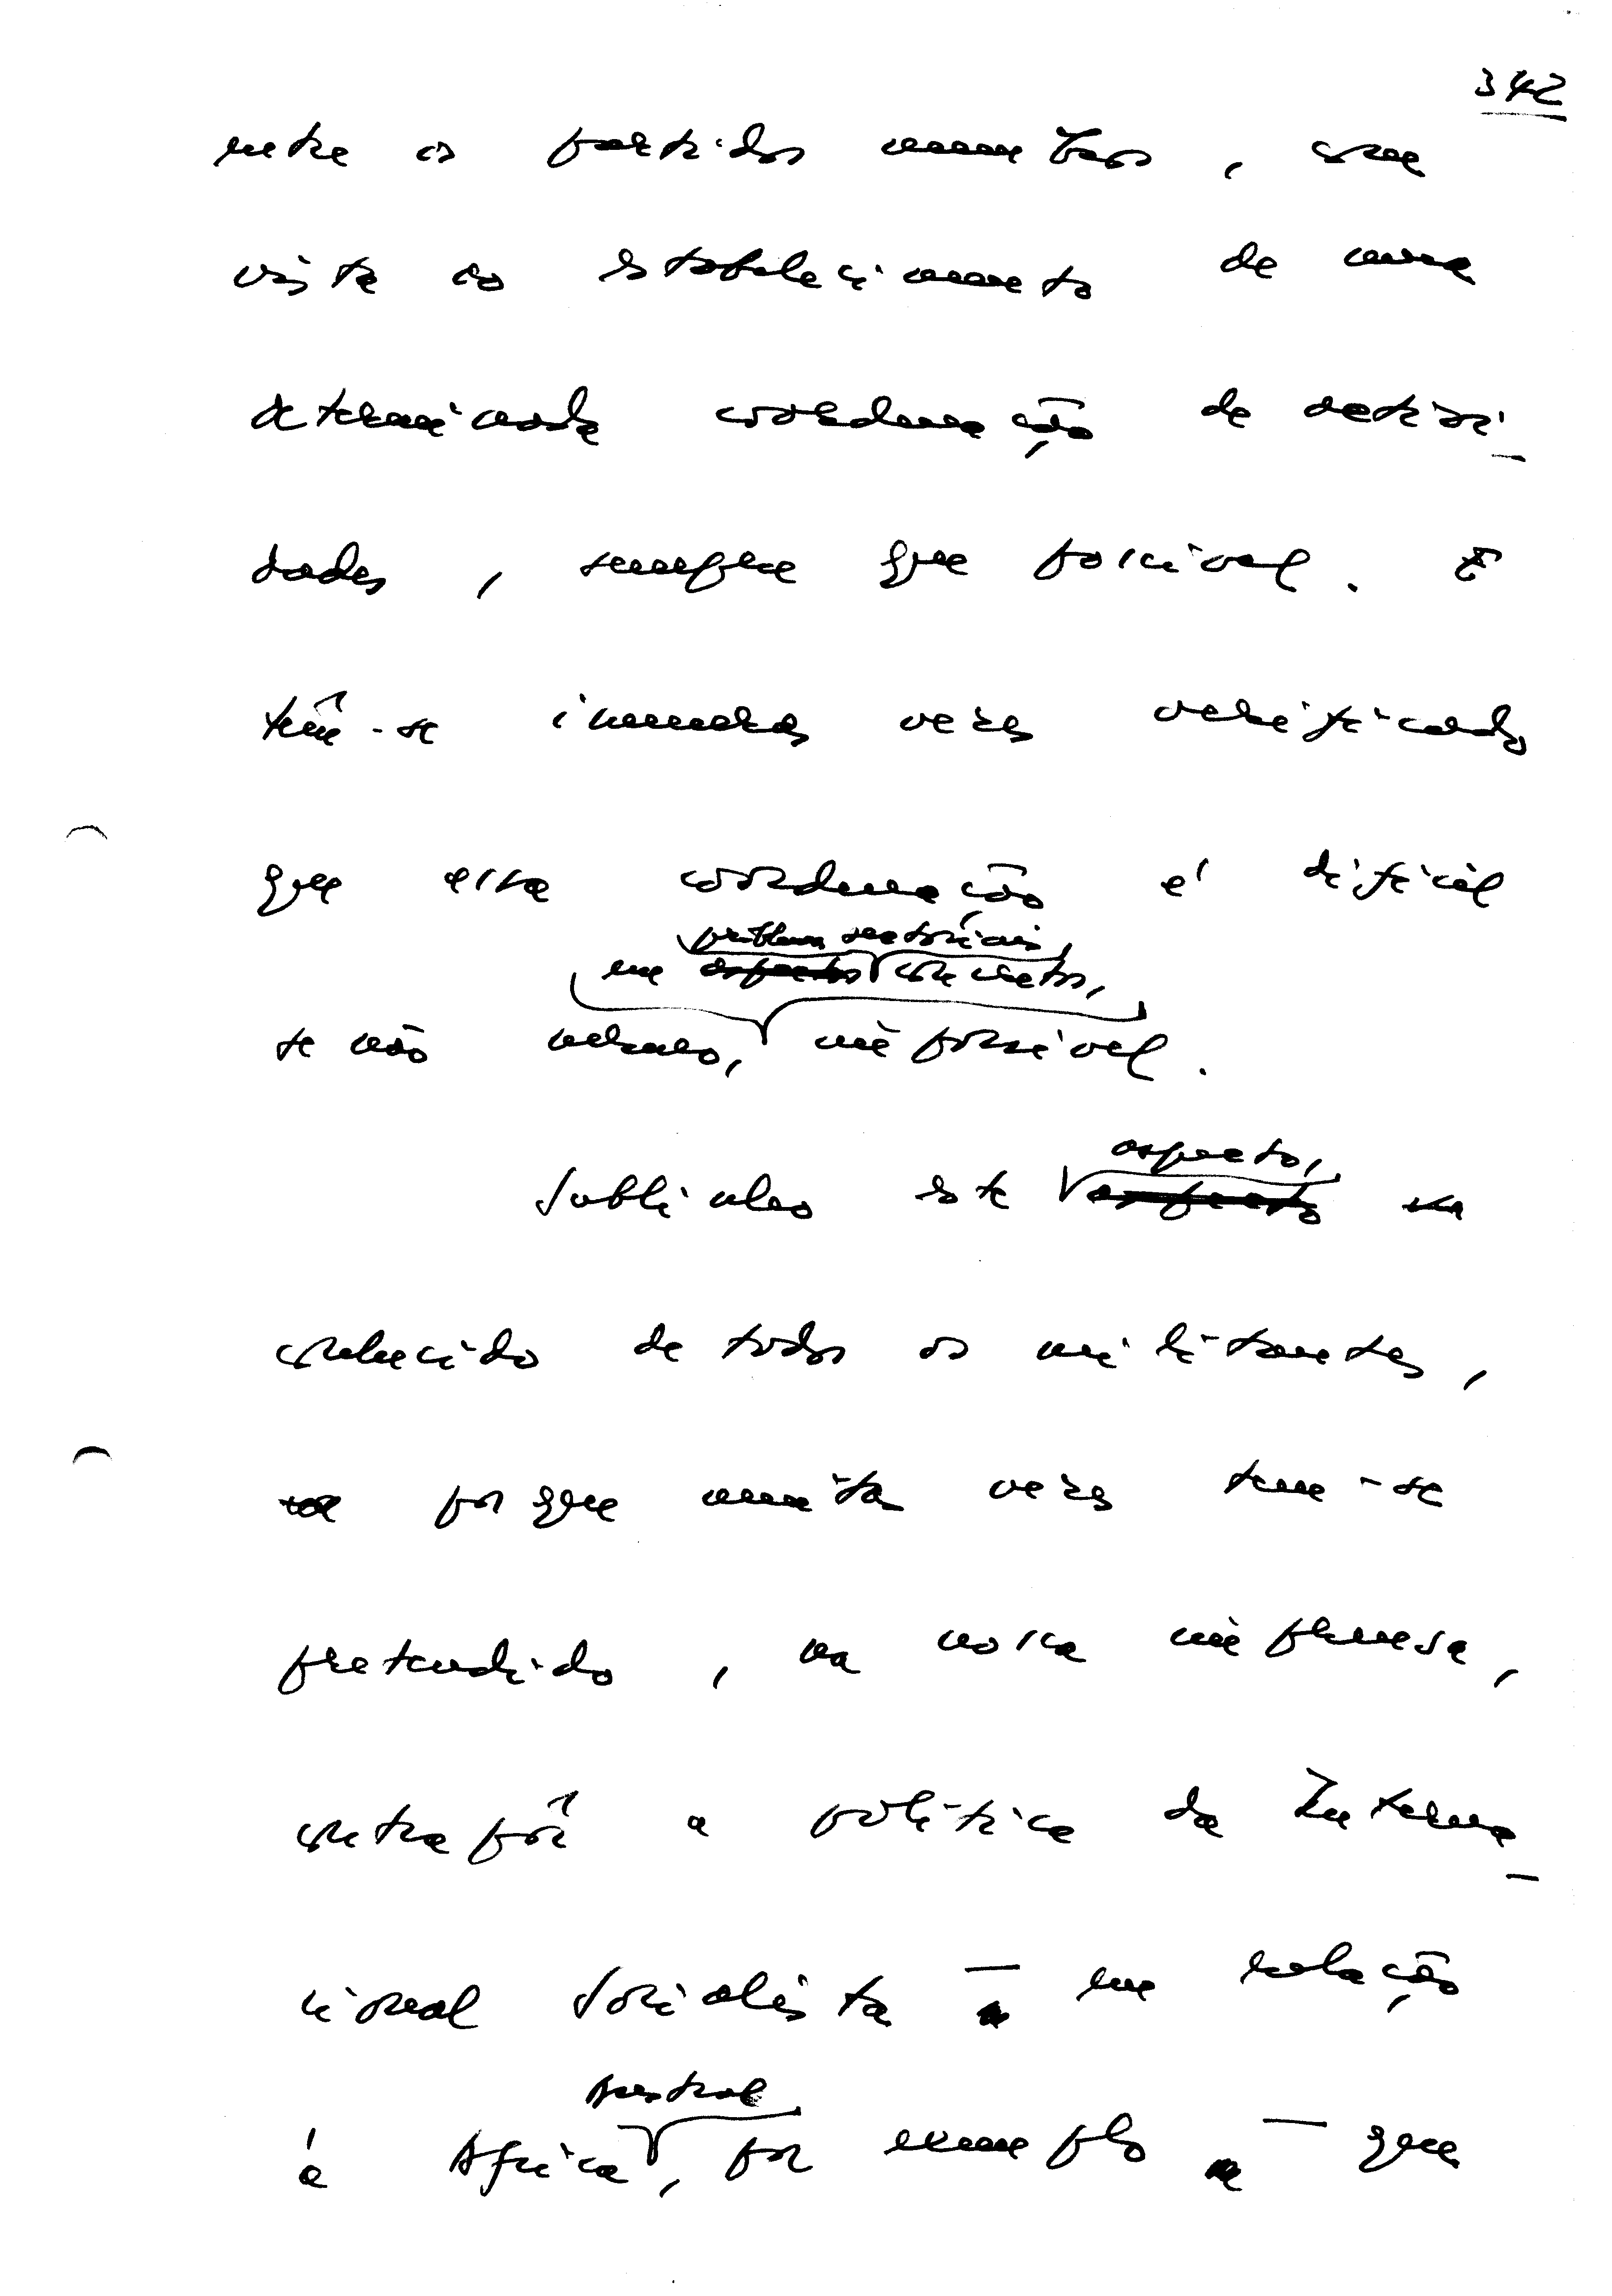 342
entre os partidos membros, com
vista ao estabelecimento de uma
determinada coordenação de activi-
dades, sempre que possível. E
têm-se inúmeras vezes verificado
que essa coordenação é difícil
problemas sectoriais
em aspectos concretos,
se não mesmo, impossível.
aspecto,
Sublinho este aspecto
conhecido de todos os militantes,
porque muitas vezes tem-se
pretendido, na nossa imprensa,
contrapôr a política da Interna-
cional Socialista — em relação
Austral
à África, por exemplo — que